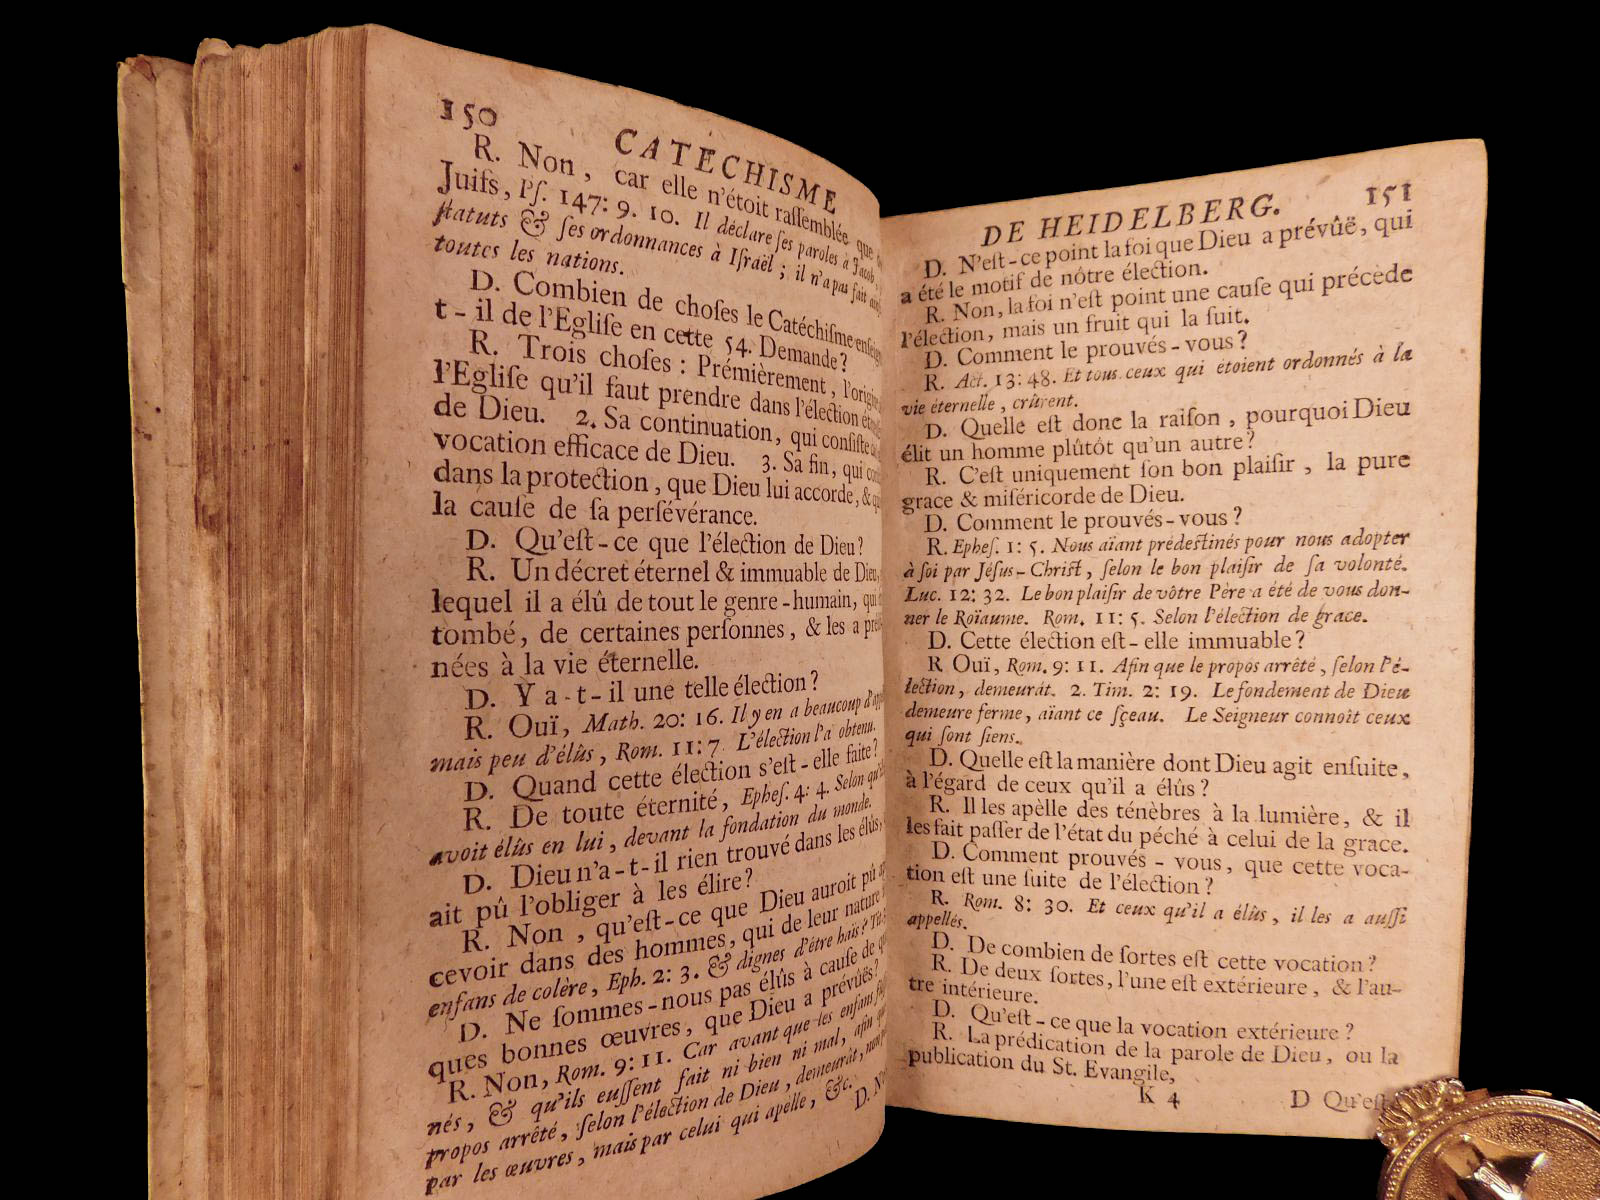 150
CATÉCHISME
R. Non, car elle n'étoit raſſemblée que
Juifs, Pſ. 147: 9. 10. Il déclare ſes paroles à Jacob,
ſtatuts & ſes ordonnances à Iſraël; il n'a pas fait
toutes les nations.
D. Combien de choſes le Catéchiſme
t-il de l'Egliſe en cette 54. Demande?
R. Trois choſes: Prémièrement, l'origine
l'Egliſe qu'il faut prendre dans l'élection
de Dieu. 2. Sa continuation, qui conſiſte
vocation efficace de Dieu. 3. Sa fin, qui
dans la protection, que Dieu lui accorde, &
la cauſe de ſa perſévérance.
D. Qu'eſt-ce que l'élection de Dieu?
R. Un décret éternel & immuable de Dieu,
lequel il a élû de tout le genre-humain, qui
tombé, de certaines perſonnes, & les a
nées à la vie éternelle.
D. Y a-t-il une telle élection?
R. Ouï, Math. 20: 16. Il y en a beaucoup
mais peu d'élûs, Rom. 11: 7. L'élection l'a obtenu.
D. Quand cette élection s'eſt-elle faite?
R. De toute éternité, Epheſ. 4: 4. Selon
avoit élûs en lui, devant la fondation du monde.
D. Dieu n'a-t-il rien trouvé dans les élûs,
ait pû l'obliger à les élire?
R. Non, qu'eſt-ce que Dieu auroit pû
cevoir dans des hommes, qui de leur nature
enfans de colère, Eph. 2: 3. & dignes d'être haïs?
D. Ne ſommes-nous pas élûs à cauſe de
ques bonnes œuvres, que Dieu a prévûës?
R. Non, Rom. 9: 11. Car avant que les enfans
nés, & qu'ils euſſent fait ni bien ni mal, afin
propos arrêté, ſelon l'élection de Dieu, demeurât,
par les œuvres, mais par celui qui apelle, &c.
D.
DE HEIDELBERG.
151
D. N'eſt-ce point la foi que Dieu a prévûë, qui
a été le motif de nôtre élection.
R. Non, la foi n'eſt point une cauſe qui précède
l'élection, mais un fruit qui la ſuit.
D. Comment le prouvés-vous?
R. Act. 13: 48. Et tous ceux qui étoient ordonnés à la
vie éternelle, crûrent.
D. Quelle eſt donc la raiſon, pourquoi Dieu
élit un homme plûtôt qu'un autre?
R. C'eſt uniquement ſon bon plaiſir, la pure
grace & miſéricorde de Dieu.
D. Comment le prouvés-vous?
R. Epheſ. 1: 5. Nous aïant prédeſtinés pour nous adopter
à ſoi par Jéſus-Chriſt, ſelon le bon plaiſir de ſa volonté.
Luc. 12: 32. Le bon plaiſir de vôtre Père a été de vous don-
ner le Roïaume. Rom. 11: 5. Selon l'élection de grace.
D. Cette élection eſt-elle immuable?
R Ouï, Rom. 9: 11. Afin que le propos arrêté, ſelon l'é-
lection, demeurât. 2. Tim. 2: 19. Le fondement de Dieu
demeure ferme, aïant ce ſçeau. Le Seigneur connoît ceux
qui ſont ſiens.
D. Quelle eſt la manière dont Dieu agit enſuite,
à l'égard de ceux qu'il a élûs?
R. Il les apèlle des ténèbres à la lumière, & il
les fait paſſer de l'état du péché à celui de la grace.
D. Comment prouvés-vous, que cette voca-
tion eſt une ſuite de l'élection?
R. Rom. 8: 30. Et ceux qu'il a élûs, il les a auſſi
appellés.
D. De combien de ſortes eſt cette vocation?
R. De deux ſortes, l'une eſt extérieure, & l'au-
tre intérieure.
D. Qu'eſt-ce que la vocation extérieure?
R. La prédication de la parole de Dieu, ou la
publication du St. Evangile,
K 4
D Qu'eſt